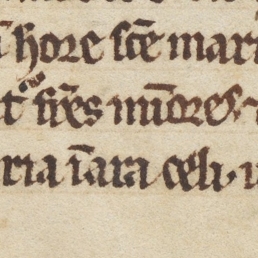 hore sc̄e mari
t fr̄es mīores.
ria ī ara celi.